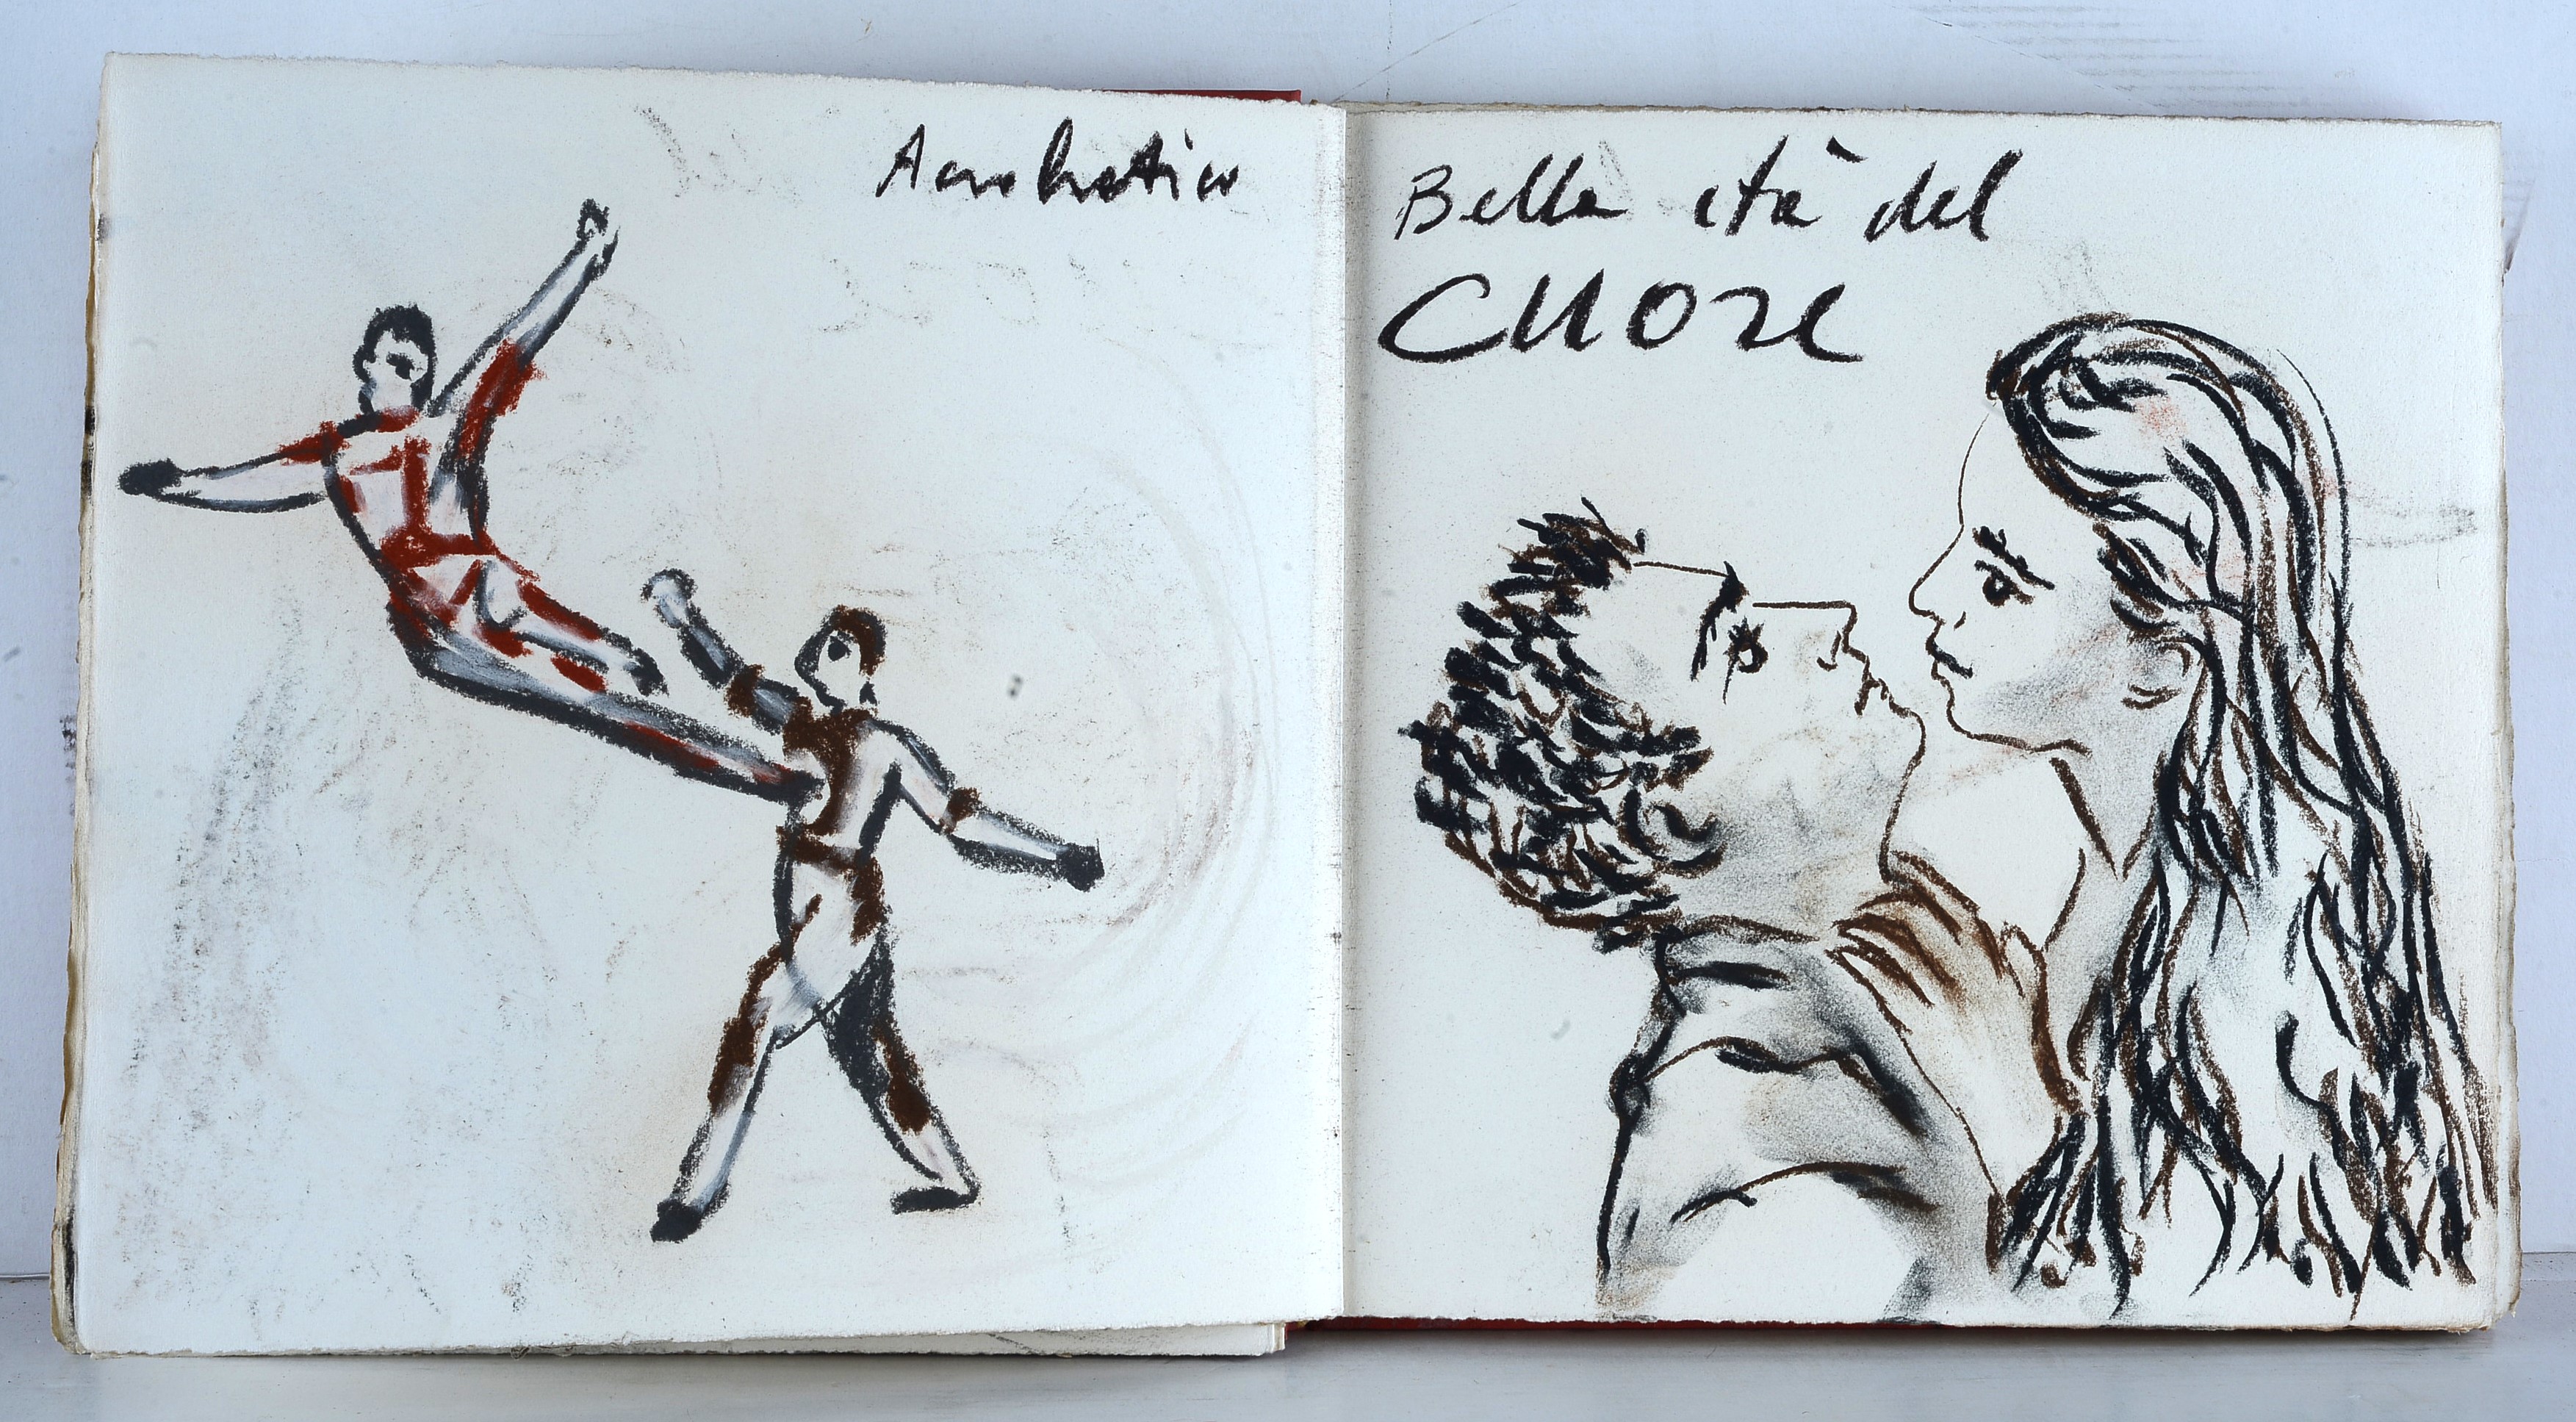 Acrobatico
Bella età del
CUORE